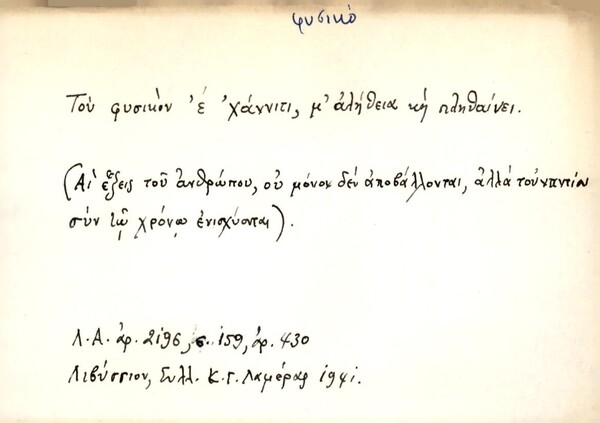 φυσικό
Τοὺ φυσικὸν 'έ 'χάννιτι, μ' ἀλήθεια κὴ πληθαίνει.
(Αἱ ἕξεις τοῦ ἀνθρώπου, οὐ μόνον δὲν ἀποβάλλονται, ἀλλὰ τοὐναντίον
σὺν τῷ χρόνῳ ἐνισχύονται).
Λ.Α. ἀρ. 2196, σ. 159, ἀρ. 430
Λιβύσσιον, Συλλ. Κ.Γ. Λαμέρας 1941.